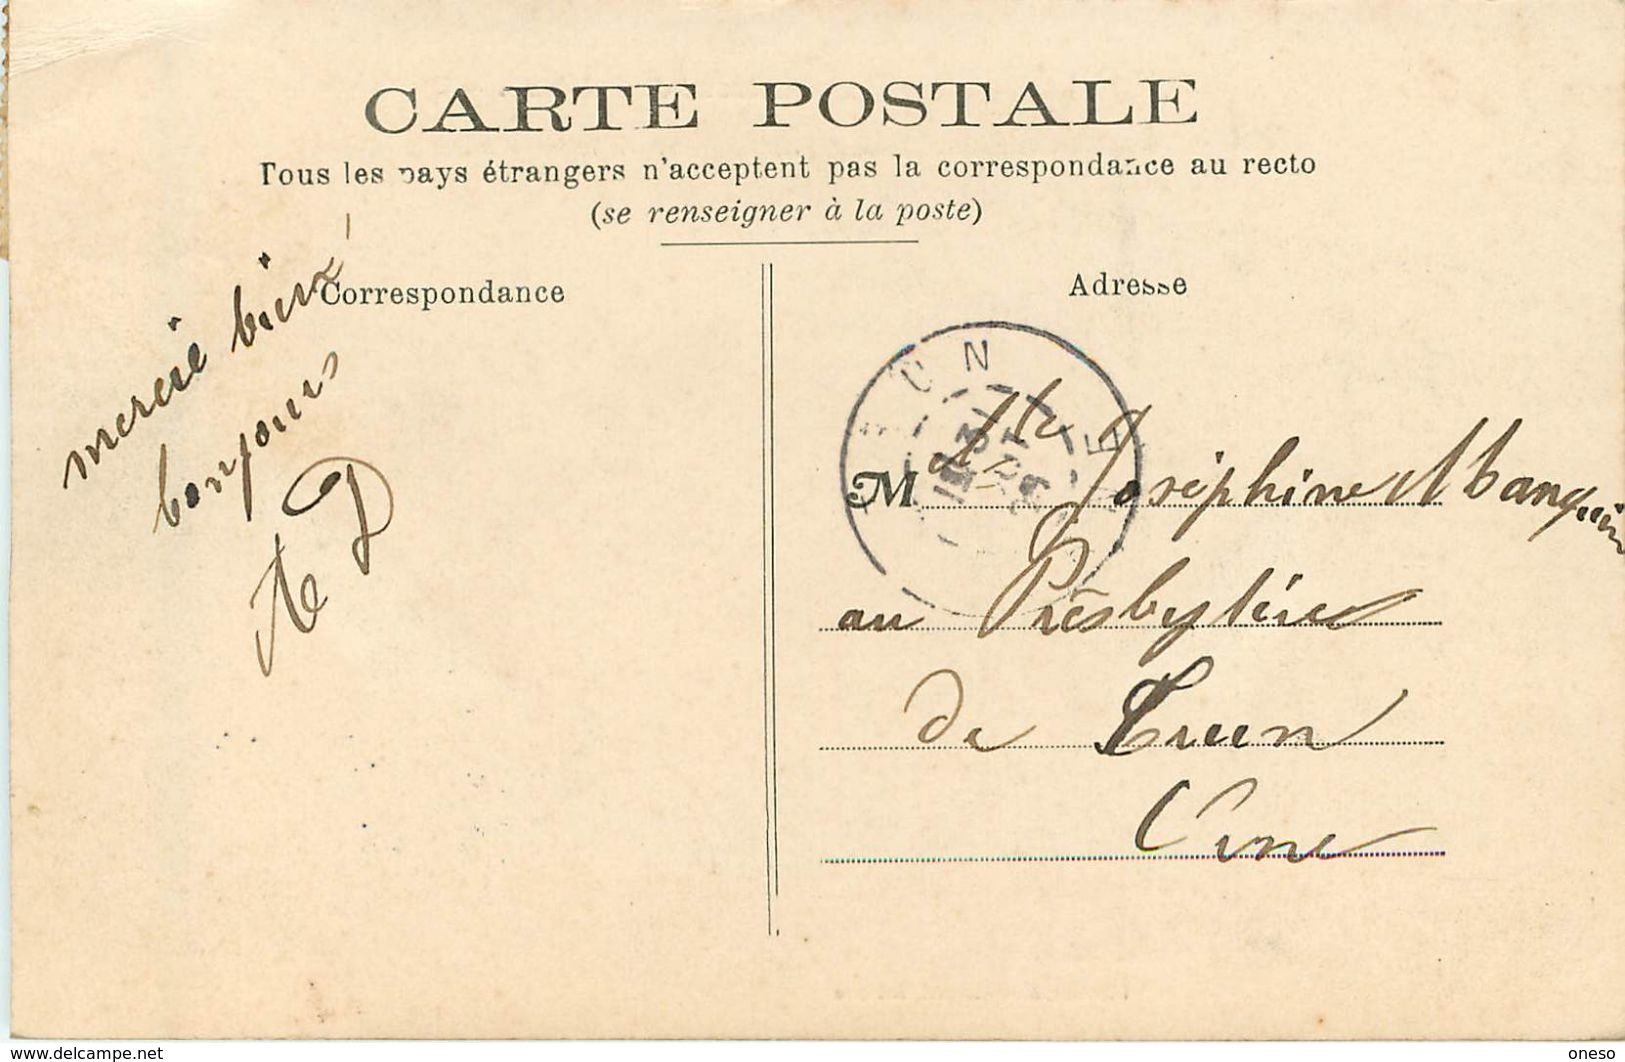 CARTE POSTALE
Tous les pays étrangers n'acceptent pas la correspondance au recto
(se renseigner à la poste)
Correspondance
Adresse
mercie bien
bonjours
A D
TRUN
M Mlle Joséphine Manquin
au Présbytère
de Trun
Orne
www.delcampe.net
oneso